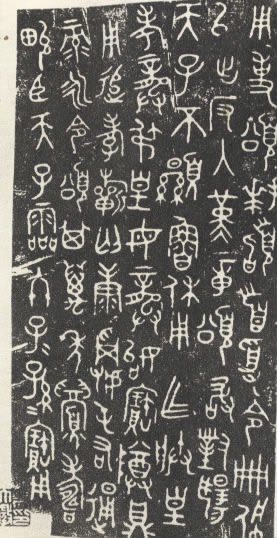 用事頌拜䭫首受令冊佩
以出反入堇章頌敢對揚
天子不顯魯休用乍朕皇
考龔弔皇母龔始寶尊鼎
用追孝𣄨匃康䨣屯右通
彔永令頌其萬年眉壽
畯臣天子霝冬子〻孫〻寶用